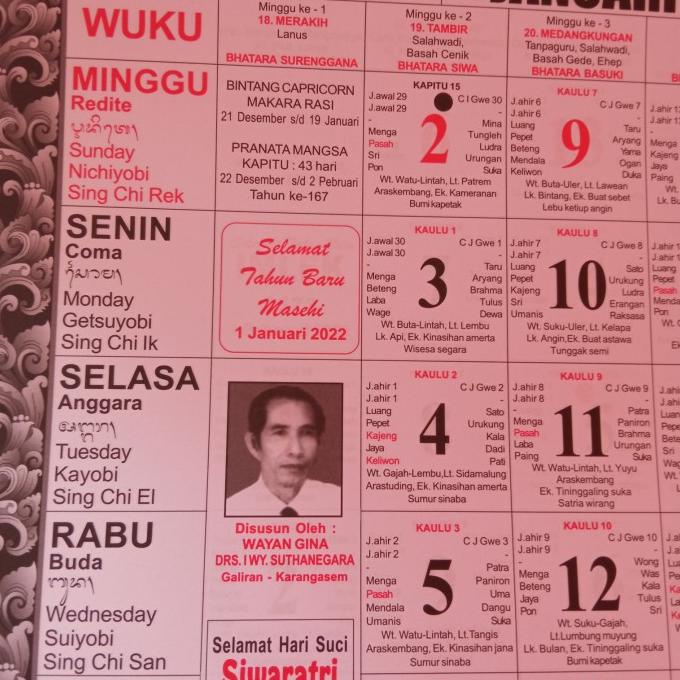 JANUARI
WUKU
Minggu ke - 1
18. MERAKIH
Lanus
BHATARA SURENGGANA
Minggu ke - 2
19. TAMBIR
Salahwadi,
Basah Cenik
BHATARA SIWA
Minggu ke - 3
20. MEDANGKUNGAN
Tanpaguru, Salahwadi,
Basah Gede, Ehep
BHATARA BASUKI
MINGGU
Redite
Sunday
Nichiyobi
Sing Chi Rek
BINTANG CAPRICORN
MAKARA RASI
21 Desember s/d 19 Januari
PRANATA MANGSA
KAPITU : 43 hari
22 Desember s/d 2 Pebruari
Tahun ke-167
KAPITU 15
J.awal 29
J.awal 29
-
Menga
Pasah
Sri
Pon
2
C I Gwe 30
-
Mina
Tungleh
Ludra
Urungan
Suka
Wt. Watu-Lintah, Lt. Patrem
Araskembang, Ek. Kameranan
Bumi kapetak
KAULU 7
J.ahir 6
J.ahir 6
Luang
Pepet
Beteng
Mendala
Keliwon
9
C J Gwe 7
-
Taru
Aryang
Yama
Ogan
Duka
Wt. Buta-Uler, Lt. Lawean
Lk. Bintang, Ek. Buat sebet
Lebu ketiup angin
SENIN
Coma
Monday
Getsuyobi
Sing Chi Ik
Selamat
Tahun Baru
Masehi
1 Januari 2022
KAULU 1
J.awal 30
J.awal 30
-
Menga
Beteng
Laba
Wage
3
C J Gwe 1
-
Taru
Aryang
Brahma
Tulus
Dewa
Wt. Buta-Lintah, Lt. Lembu
Lk. Api, Ek. Kinasihan amerta
Wisesa segara
KAULU 8
J.ahir 7
J.ahir 7
Luang
Pepet
Kajeng
Sri
Umanis
10
C J Gwe 8
-
Sato
Urukung
Ludra
Erangan
Raksasa
Wt. Suku-Uler, Lt. Kelapa
Lk. Angin,Ek. Buat astawa
Tunggak semi
SELASA
Anggara
Tuesday
Kayobi
Sing Chi El
Disusun Oleh :
WAYAN GINA
DRS. I WY. SUTHANEGARA
Galiran - Karangasem
KAULU 2
J.ahir 1
J.ahir 1
Luang
Pepet
Kajeng
Jaya
Keliwon
4
C J Gwe 2
-
Sato
Urukung
Kala
Dadi
Pati
Wt. Gajah-Lembu,Lt. Sidamalung
Arastuding, Ek. Kinasihan amerta
Sumur sinaba
KAULU 9
J.ahir 8
J.ahir 8
-
Menga
Pasah
Laba
Paing
11
C J Gwe 9
-
Patra
Paniron
Brahma
Urungan
Suka
Wt. Watu-Lintah, Lt. Yuyu
Araskembang
Ek. Tininggaling suka
Satria wirang
RABU
Buda
Wednesday
Suiyobi
Sing Chi San
Selamat Hari Suci
Siwaratri
KAULU 3
J.ahir 2
J.ahir 2
-
Menga
Pasah
Mendala
Umanis
5
C J Gwe 3
-
Patra
Paniron
Uma
Dangu
Suka
Wt. Watu-Lintah, Lt.Tangis
Araskembang, Ek. Kinasihan jana
Sumur sinaba
KAULU 10
J.ahir 9
J.ahir 9
-
Menga
Beteng
Jaya
Pon
12
C J Gwe 10
Wong
Was
Kala
Tulus
Sri
Wt. Suku-Gajah,
Lt.Lumbung muyung
Lk. Bulan, Ek. Tininggaling suka
Bumi kapetak